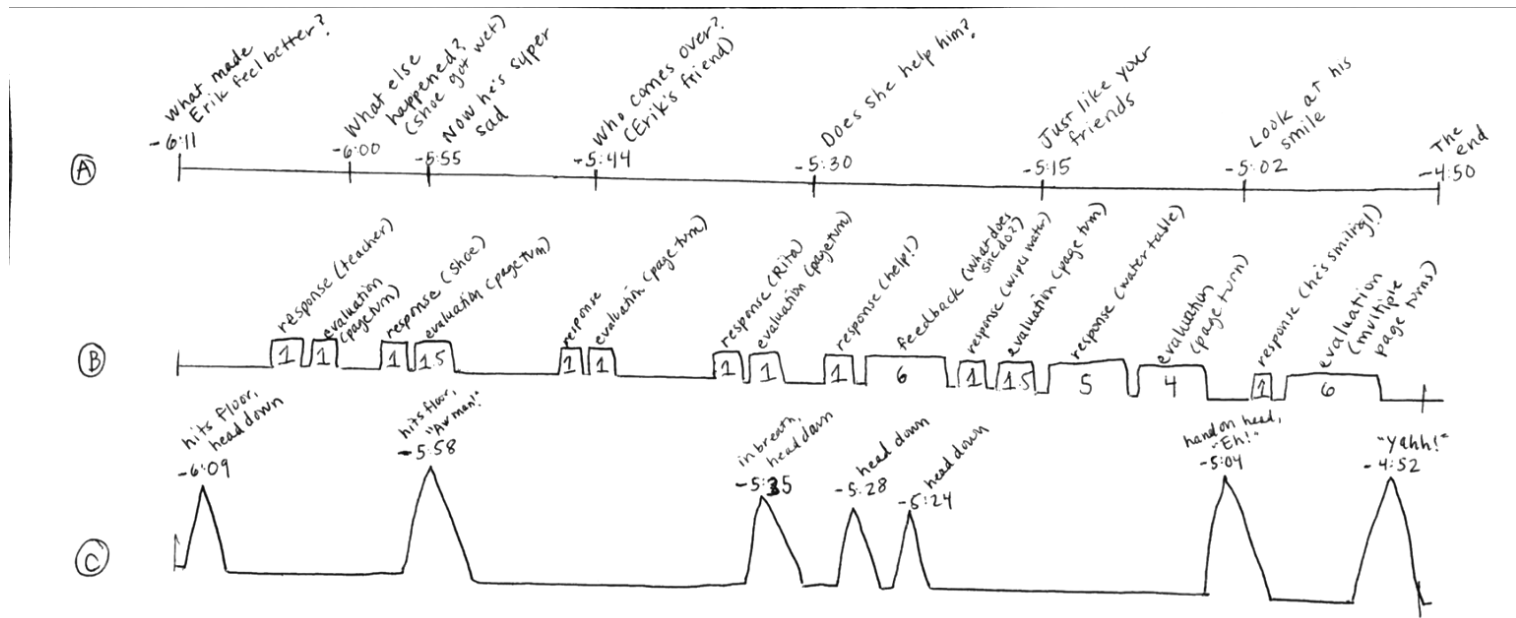 What made
Erik feel better?
-6:11
What else
happened?
(shoe got wet)
-6:00
Now he's super
sad
-5:55
Who comes over?
(Erik's friend)
-5:44
Does she help him?
-5:30
Just like your
friends
-5:15
Look at his
smile
-5:02
The
end
-4:50
A
response (teacher)
1
evaluation
(page turn)
1
response (shoe)
1
evaluation (page turn)
1.5
response
1
evaluation (page turn)
1
response (Rita)
1
evaluation (page turn)
1
response (help!)
1
feedback (what does
she do?)
6
response (wipes water)
1
evaluation (page turn)
1.5
response (water table)
5
evaluation
(page turn)
4
response (he's smiling!)
1
evaluation
(multiple
page turns)
6
B
hits floor,
head down
-6:09
hits floor,
"Aw man!"
-5:58
in breath,
head down
-5:35
head down
-5:28
head down
-5:24
hand on head,
"Eh!"
-5:04
"Yahh!"
-4:52
C